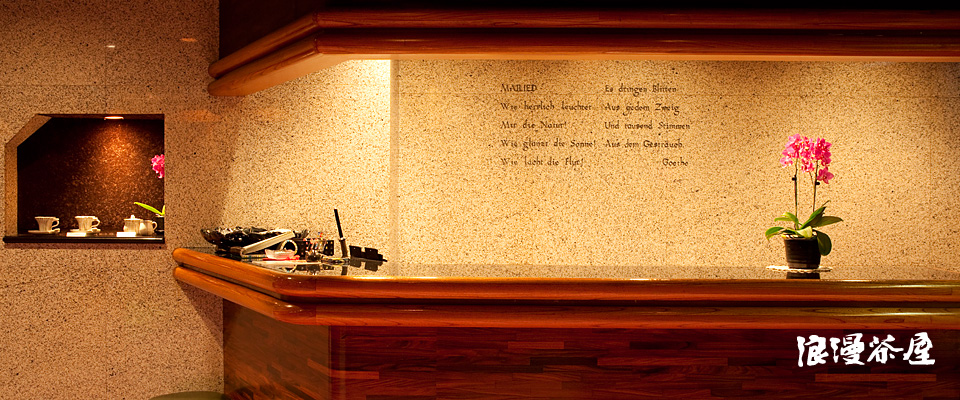 MAILIED
Wie herrlich leuchtet
Mir die Natur!
Wie glänzt die Sonne!
Wie lacht die Flur!
Es dringen Blüten
Aus jedem Zweig
Und tausend Stimmen
Aus dem Gesträuch.
Goethe
浪漫茶屋